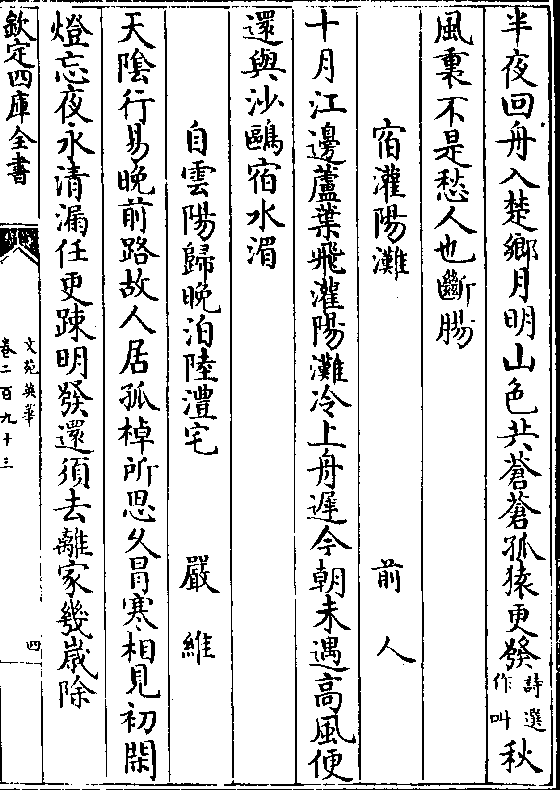 半夜回舟入楚鄉月明山色共蒼蒼孤猿更發詩選作叫秋
風裏不是愁人也斷腸
宿灌陽灘 前人
十月江邊蘆葉飛灌陽灘冷上舟遲今朝未遇高風便
還與沙鷗宿水湄
自雲陽歸晚泊陸澧宅 嚴維
天陰行易晚前路故人居孤棹所思久冐寒相見初閑
燈忘夜永清漏任更踈明發還須去離家幾歲除
欽定四庫全書
文苑英華
卷二百九十三
四